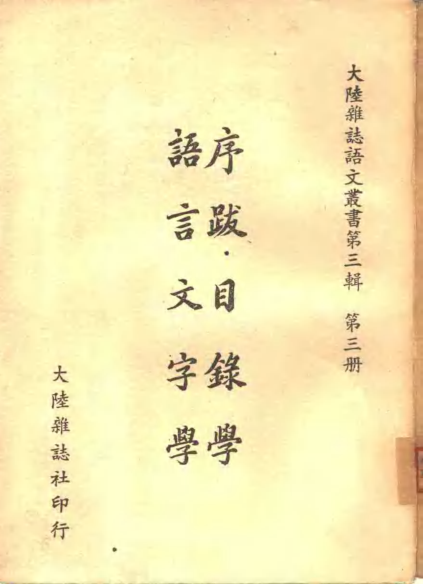 大陸雜誌語文叢書第三輯　第三册
序跋·目錄學
語言文字學
大陸雜誌社印行